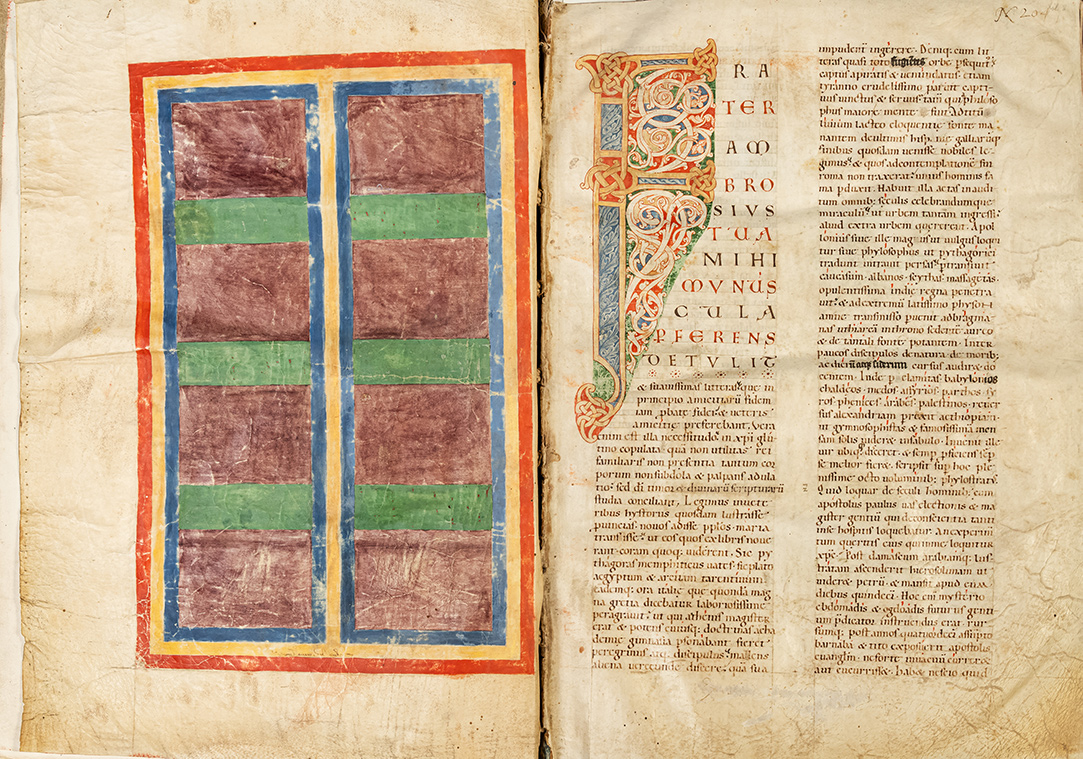 N 20
F RA
TER
AM
BRO
SIUS
TUA
MIHI
MUNUS
CULA
PFERENS
DETULIT
& suauissimas litteras que in
principio amicitiarū fidem
iam pbate fidei & ueteris
amicitie preferebant. Vera
enim est illa necessitudo & xpi glu
tino copulata quā non utilitas rei
familiaris non presentia tantum cor
porum non subdola & palpans adula
tio sed di timor & diuinarū scripturarū
studia conciliant. Legimus in uete
ribus hystoriis quosdam lustrasse
puincias nouos adisse pplos maria
transisse ut eos quos ex libris noue
rant coram quoq; uiderent. Sic py
thagoras memphiticus uates sic plato
aegyptum & architam tarentinum
eademq; ora italie que quondā mag
na gretia dicebatur laboriosissime
peragrauit ut qui athenis magister
erat & potens cuiusq; doctrinas acha
demie gimnasia psonabant fieret
peregrinus atq; discipulus malens
aliena uerecunde discere quā sua
impudenter ingerere. Deniq; cum lit
teras quasi toto fugientes orbe psequit
captus a piratis & uenundatus etiam
tyranno crudelissimo paruit capti
uus uinctus & seruus. tam quia philoso
phus maior emente se fuit. Ad titū
liuium lacteo eloquentie fonte ma
nantem de ultimis hispanie galliarūq;
finibus quosdam uenisse nobiles le
gimus & quos ad contemplationē sui
roma non traxerat unius hominis fa
ma pduxit. Habuit illa aetas inaudi
tum omnib; seculis celebrandumque
miraculū ut urbem tantam ingressi
aliud extra urbem quererent. Apol
lonius siue ille magus ut uulgus loqui
tur siue phylosophus ut pythagorici
tradunt intrauit persas ptransiuit
caucasum albanos scythas massagetas
opulentissima indie regna penetra
uit & ad extremū latissimo physon
amne transmisso puenit ad bragma
nas ut hiarcam in throno sedentē aureo
& de tantali fonte potantem. Inter
paucos discipulos de natura de morib;
ac dierū atq; siderum cursus audirē do
centem. Inde p elamitas babylonios
chaldeos medos assyrios parthos sy
ros phenices arabes palestinos reuer
sus alexandriam prexit aethiopiam
ut gymnosophistas & famosissimā men
sam solis uideret in sabulo. Inuenit ille
uir ubiq; disceret & semp pficiens sep
se melior fieret. Scripsit sup hoc ple
nissime octo uoluminib; phylostratus.
Quid loquar de seculi hominib; cum
apostolus paulus uas electionis & ma
gister gentiū qui de conscientia tanti
in se hospitis loquebatur. An experimt
tum queritis eius qui in me loquitur
xpc. Post damascum arabiamq; lus
tratam ascenderit hierosolimam ut
uideret petrū & mansit apud eū
diebus quindeci. Hoc eni mysterio
ebdomadis & ogdoadis futurus genti
um pdicator instruendus erat. Rur
sumq; post annos quatuordeci assūpto
barnaba & tito exposuerit apostolis
euangliū ne forte in uacuū curreret
aut cucurrisset. Habet nescio quid